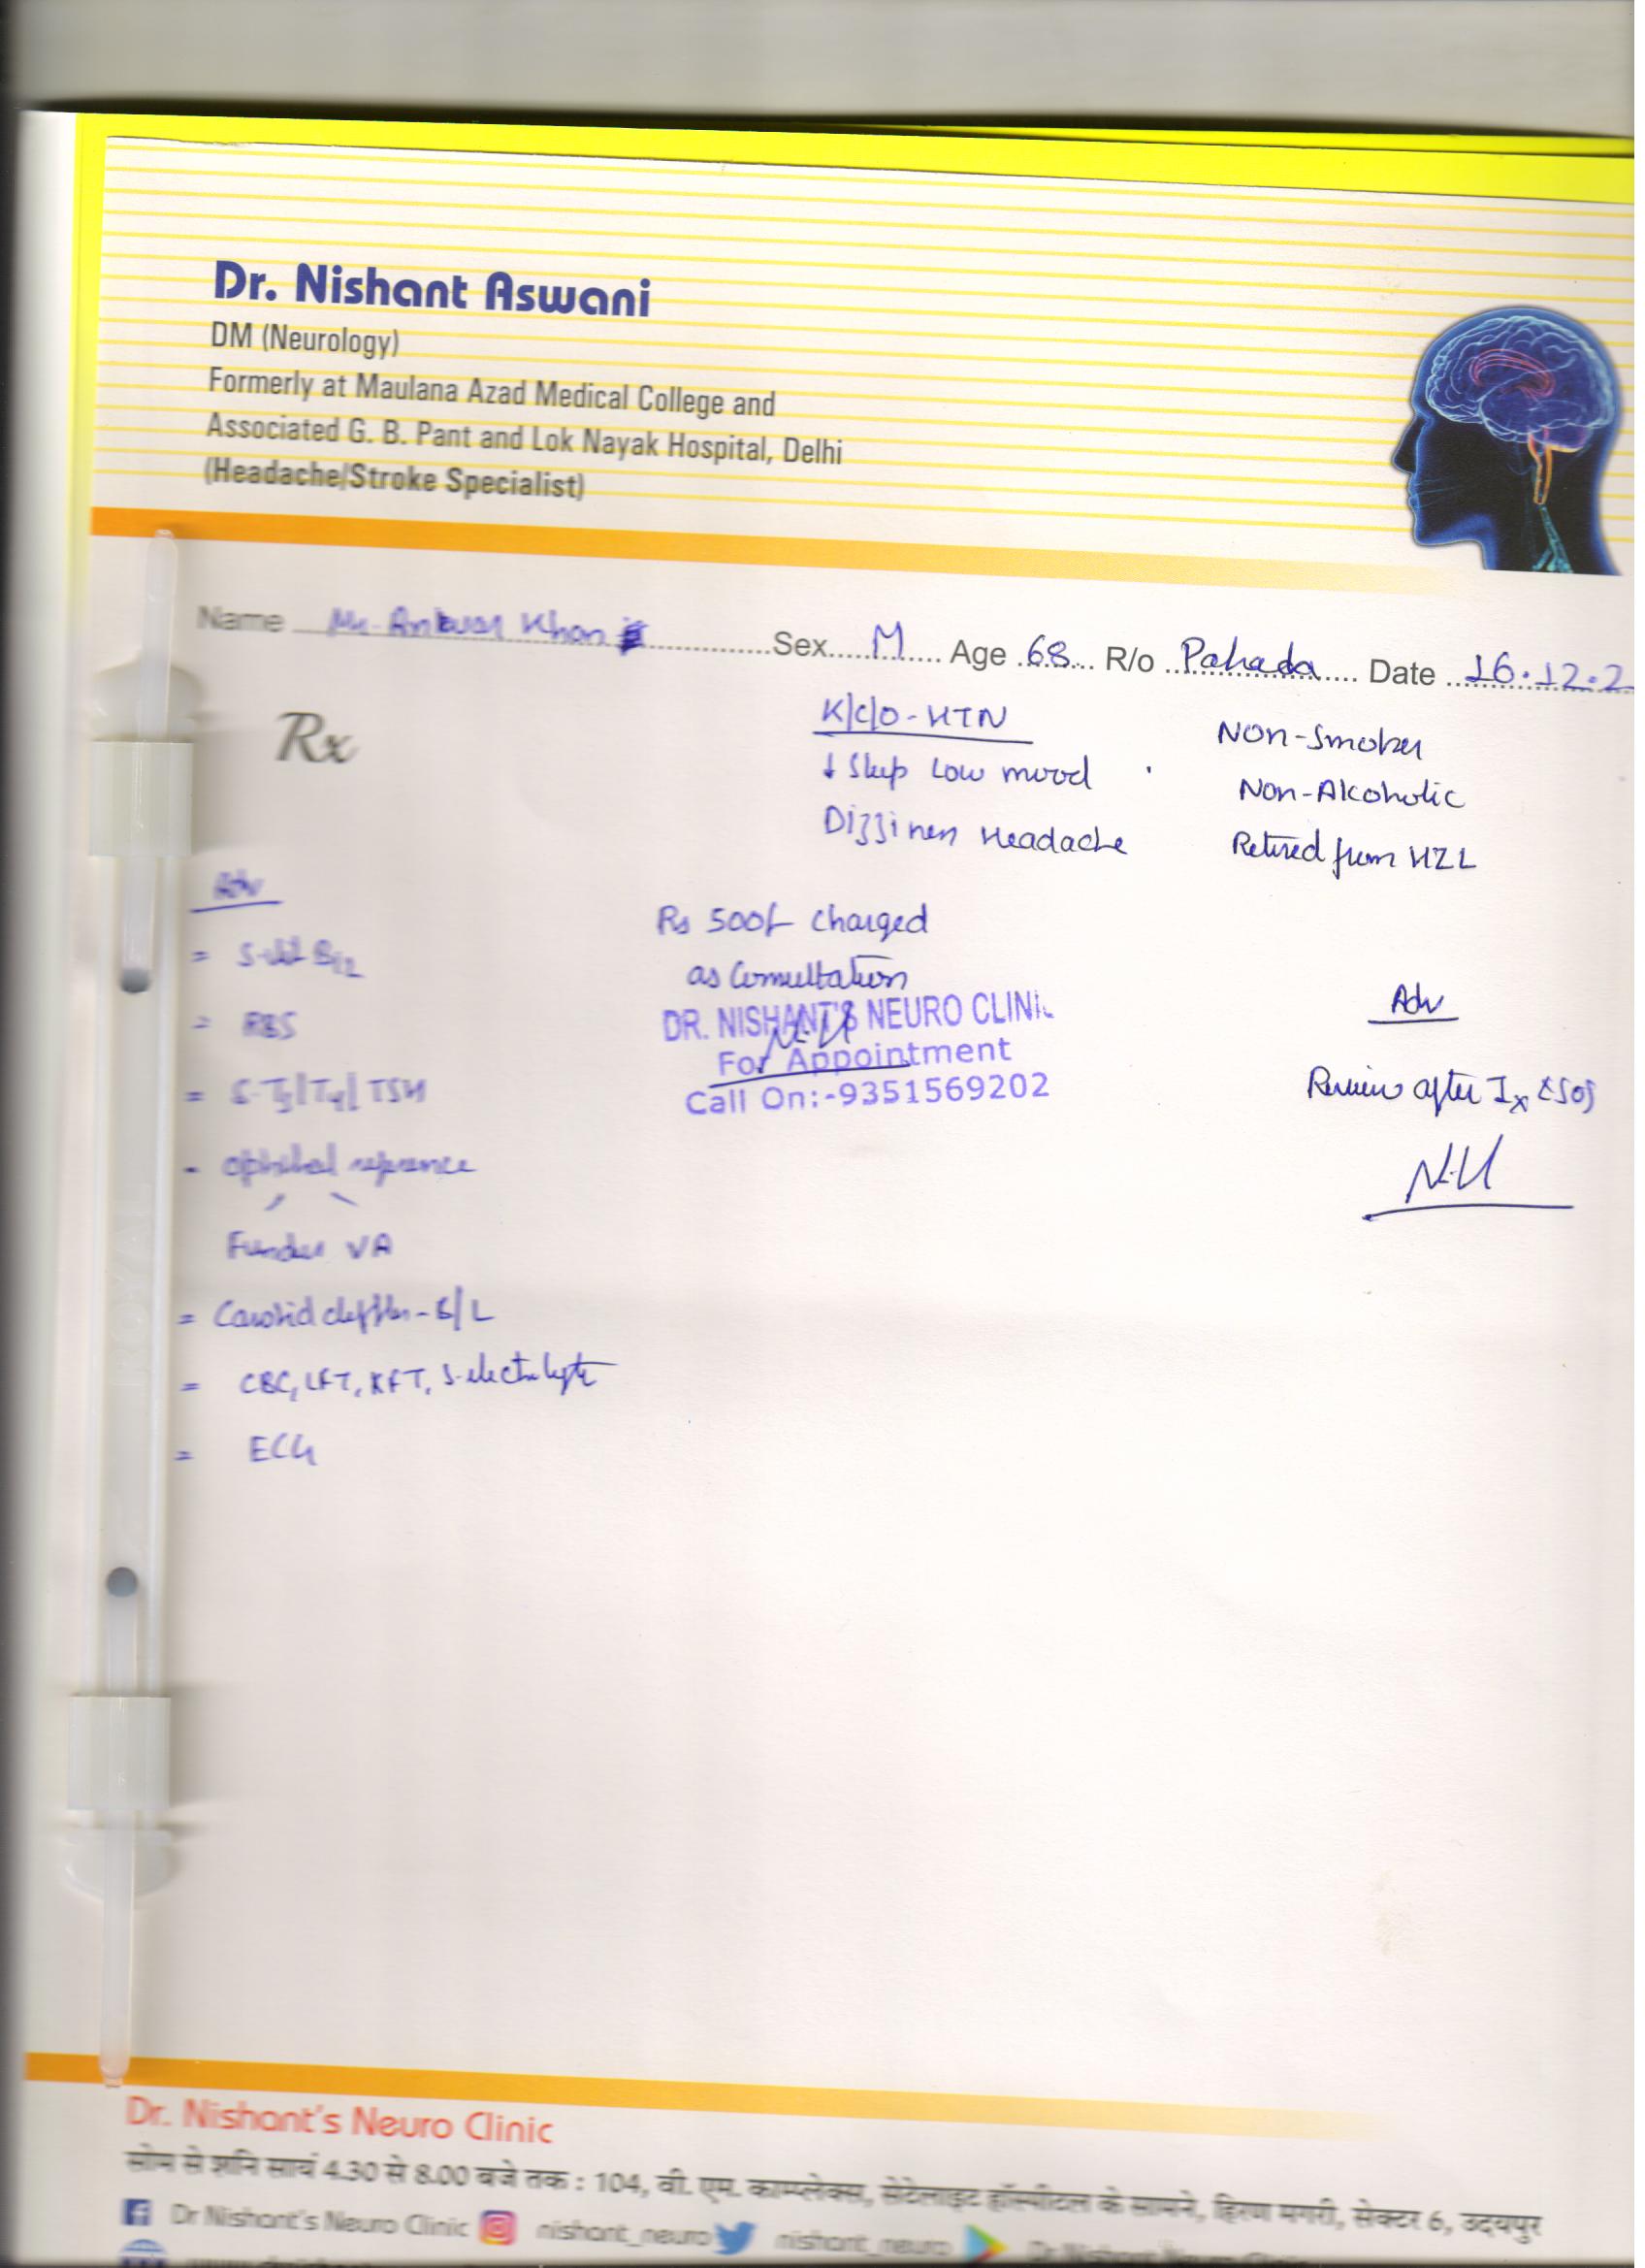 Dr. Nishant Aswani
DM (Neurology)
Formerly at Maulana Azad Medical College and
Associated G. B. Pant and Lok Nayak Hospital, Delhi
(Headache/Stroke Specialist)
Name Mr. Khan Sex M Age 68 R/o Pahada Date 16.12.2
Rx
K/c/o - HTN
↓ Sleep Low mood
Dizziness Headache
Non-Smoker
Non-Alcoholic
Retired from HZL
Adv
= S. Vit B12
= RBS
= S-T3/T4/TSH
- Ophthal reference
Fundus VA
= Carotid doppler - B/L
= CBC, LFT, KFT, S. electrolyte
= ECG
Rs 500/- charged
as Consultation
DR. NISHANT'S NEURO CLINIC
For Appointment
Call On:-9351569202
Adv
Review after Ix & SOS
Dr. Nishant's Neuro Clinic
सोम से शनि सायं 4.30 से 8.00 बजे तक : 104, वी. एम. काम्प्लेक्स, सेटेलाइट हॉस्पीटल के सामने, हिरण मगरी, सेक्टर 6, उदयपुर
Dr Nishant's Neuro Clinic nishant_neuro nishant_neuro Dr Nishant Neuro Clinic